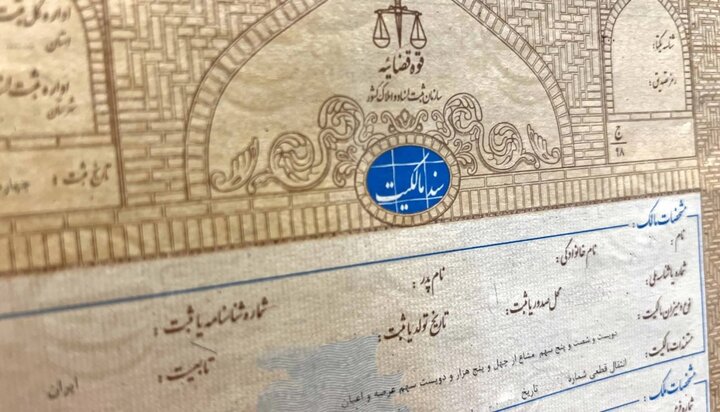 قوه قضائیه
سازمان ثبت اسناد و املاک کشور
اداره کل ثبت
استان
اداره ثبت
شهرستان
تاریخ ثبت :
شناسه یکتا :
ج
۹۸
سند مالکیت
مشخصات مالک :
نام : نام خانوادگی : نام پدر : شماره شناسنامه یا ثبت :
شماره یا شناسه ملی : محل صدور یا ثبت : تاریخ تولد یا ثبت : تابعیت : ایران
نوع و میزان مالکیت : دویست و شصت و پنج سهم مشاع از چهل و پنج هزار و دویست سهم عرصه و اعیان
مستندات مالکیت : انتقال قطعی شماره تاریخ
مشخصات ملک :